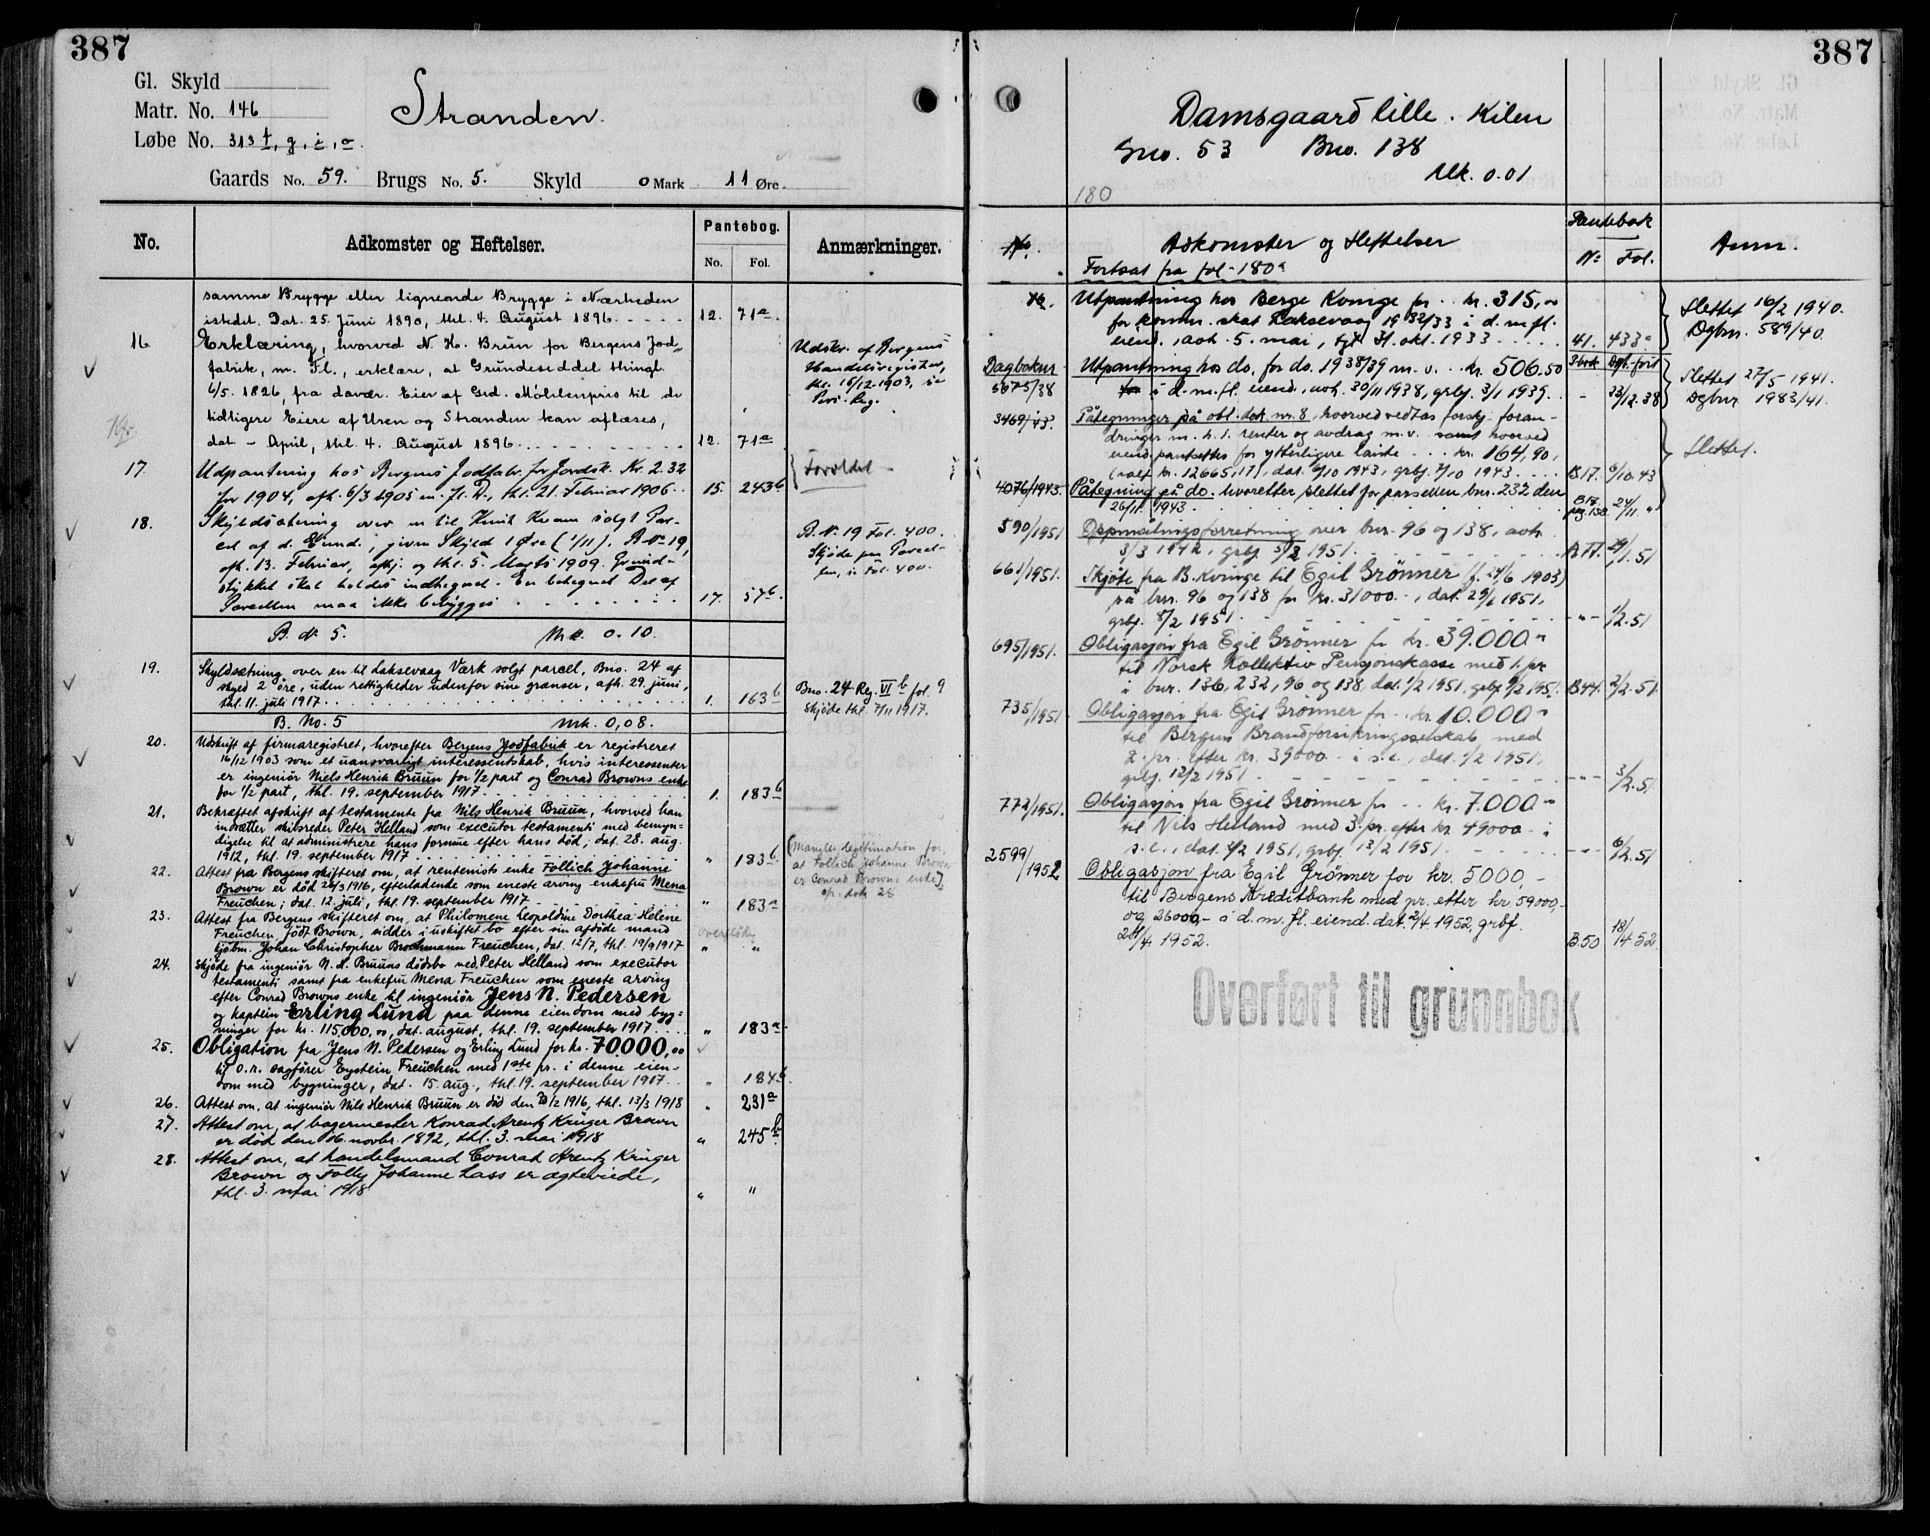 387
Gl. Skyld
Matr. No. 146
Løbe No. 313 f, g, i, o.
Stranden.
Gaards No. 59. Brugs No. 5. Skyld 0 Mark 11 Øre.
No. Adkomster og Heftelser. Pantebog. No. Fol. Anmærkninger.
samme Brygge eller lignende Brygge i Nærheden
istedet. Dat. 25. Juni 1890, thl. 4. August 1896. 12. 71a.
16. Erklæring, hvorved N. H. Bruun for Bergens Jod-
fabrik, m. Fl., erklære, at Grundeseddel thingl.
6/5. 1826, fra davær. Eier af Grd. Møhlenpris til de
tidligere Eiere af Uren og Stranden kan aflæses,
dat. - April, thl. 4. August 1896. 12. 71a
Udskr. af Bergens
Handelsregister,
thl. 16/12 1903, se
Pers. Reg.
17. Udpantning hos Bergens Jodfabr. for Jordsk. Kr. 2.32
for 1904, afh. 6/3 1905 m. fl. D., thl. 21. Februar 1906. 15. 243b
Forældet
18. Skyldsætning over en til Knut Kvam solgt Par-
cel af d. Eiend., given Skyld 1 Øre (1/11). B. No 19,
afh. 13. Februar, afhj. og thl. 5. Marts 1909. Grund-
stykket skal holdes indhegnet. En betegnet Del af
Parcellen maa ikke bebygges 17. 57b.
B. N. 19 Fol. 400.
Skjøde paa Parcel-
len, se Fol. 400.
B. No 5. Mk. 0.10.
19. Skyldsætning over en til Laksevaag Værk solgt parcel, Bno. 24 af
skyld 2 øre, uden rettigheder udenfor sine grænser, afh. 29. juni,
thl. 11. juli 1917. 1. 163b
Bno. 24 Reg. VI b fol. 9
Skjøde thl. 7/11 1917.
B. No. 5 mrk. 0,08.
20. Udskrift af firmaregistret, hvorefter Bergens Jodfabrik er registreret
16/12 1903 som et uansvarligt interessentskab, hvis interessenter
er ingeniør Niels Henrik Bruun for 1/2 part og Conrad Browns enke
for 1/2 part, thl. 19. september 1917. 1. 183b
21. Bekræftet afskrift af testamente fra Nils Henrik Bruun, hvorved han
indsætter skibsreder Peter Helland som executor testamenti med bemyn-
digelse til at administrere hans formue efter hans død, dat. 28. aug.
1912, thl. 19. september 1917 " 183b
22. Attest fra Bergens skifteret om, at rentenists enke Follich Johanne
Brown er død 26/3 1916, efterladende som eneste arving enkefru Mena
Freuchen; dat. 12. juli, thl. 19. september 1917 " 183a
(Mangler legitimation for,
at Follich Johanne Brown
er Conrad Browns enke),
cfr. dok 28
23. Attest fra Bergens skifteret om, at Philomene Leopoldine Dorthea Helene
Freuchen, født Brown, sidder i uskiftet bo efter sin afdøde mand
kjøbm. Johan Christopher Brochmann Freuchen, dat. 12/7, thl. 19/9 1917 " "
overflødig
24. Skjøde fra ingeniør N. H. Bruuns dødsbo ved Peter Helland som executor
testamenti samt fra enkefru Mena Freuchen som eneste arving
efter Conrad Browns enke til ingeniør Jens N. Pedersen
og kaptein Erling Lund paa denne eiendom med byg-
ninger for kr. 115.000,00, dat. august, thl. 19. september 1917. " 183a
25. Obligation fra Jens N. Pedersen og Erling Lund for kr. 70000,00
til o.r. sagfører Eystein Freuchen med 1ste pr. i denne eien-
dom med bygninger, dat. 15. aug., thl. 19. september 1917. " 184b.
26. Attest om, at ingeniør Nils Henrik Bruun er død den 30/12 1916, thl. 13/3 1918 " 231a
27. Attest om, at bagermester Konrad Arentz Krüger Brown
er død den 16. novbr. 1892, thl. 3. mai 1918 " 245b
28. Attest om, at handelsmand Conrad Arentz Krüger
Brown og Folly Johanne Lass er ægteviede,
thl. 3. mai 1918 " "
387
Damsgaard lille. Kilen
Gno. 53 Bno. 138
Mk. 0.01
180
No. Adkomster og Heftelser Pantebok No Fol. Anm.
Fortsat fra fol. 180a
Utpantning hos Berge Kvinge for kr. 315,00
for komm. skat Laksevaag 1932/33 i d. m. fl.
eiend., avh. 5. mai, tgl. 31. okt. 1933 41. 433a
Slettet 16/2 1940.
Dgbnr. 589/40.
Dagboknr
5675/38 Utpantning hos do. for do. 1938/39 m. v. kr. 506.50
i d. m. fl. eiend., avh. 30/11 1938, grbf. 3/1 1939. - 23/12.38
Slettet 27/5 1941.
Dgbnr 1983/41.
3469/43. Påtegninger på obl. dok nr. 8, hvorved vedtas forskj. foran-
dringer m. h. t. renter og avdrag m. v. samt hvorved
eiend. pantsettes for ytterligere lånte kr. 164,90,
(valf kr. 12665,17), dat. 4/10 1943, grbf. 7/10 1943. B.17. 6/10.43
Slettet.
4076/1943. Påtegning på do. hvoretter slettet for parsellen bnr. 232 den
26/11 1943 B17. pag. 138. 24/11 "
590/1951 Oppmålingsforretning over bnr. 96 og 138, avh.
3/3 1942, grbf. 5/2 1951. B. 77. 29/1.51
661/1951. Skjøte fra B. Kvinge til Egil Grönner (f. 24/6 1903)
på bnr. 96 og 138 for kr. 31000.-, dat. 29/1 1951,
grbf. 8/2 1951. -"- 1/2.51
695/1951. Obligasjon fra Egil Grönner for kr. 39.000"
til Norsk Kollektiv Pensjonskasse med 1. pr.
i bnr. 136, 232, 96 og 138, dat. 1/2 1951, grbf. 9/2 1951. B44. 2/2.51.
735/1951 Obligasjon fra Egil Grönner for kr. 10.000"
til Bergens Brandforsikringsselskab med
2. pr. efter kr. 39000.- i s.e., dat. 1/2 1951,
grbf. 12/2 1951 -"- 3/2.51.
772/1951. Obligasjon fra Egil Grönner for kr. 7000"
til Nils Helland med 3. pr. efter kr. 49000.- i
s. e., dat. 5/2 1951, grbf. 13/2 1951. -"- 6/2.51
2599/1952 Obligasjon fra Egil Grönner for kr. 5000,-
til Bergens Kreditbank med pr. etter kr. 59000,-
og 26000,- i d. m. fl. eiend. dat. 2/4 1952, grbf.
24/4 1952. B.50 18/4 52
Overført til grunnbok